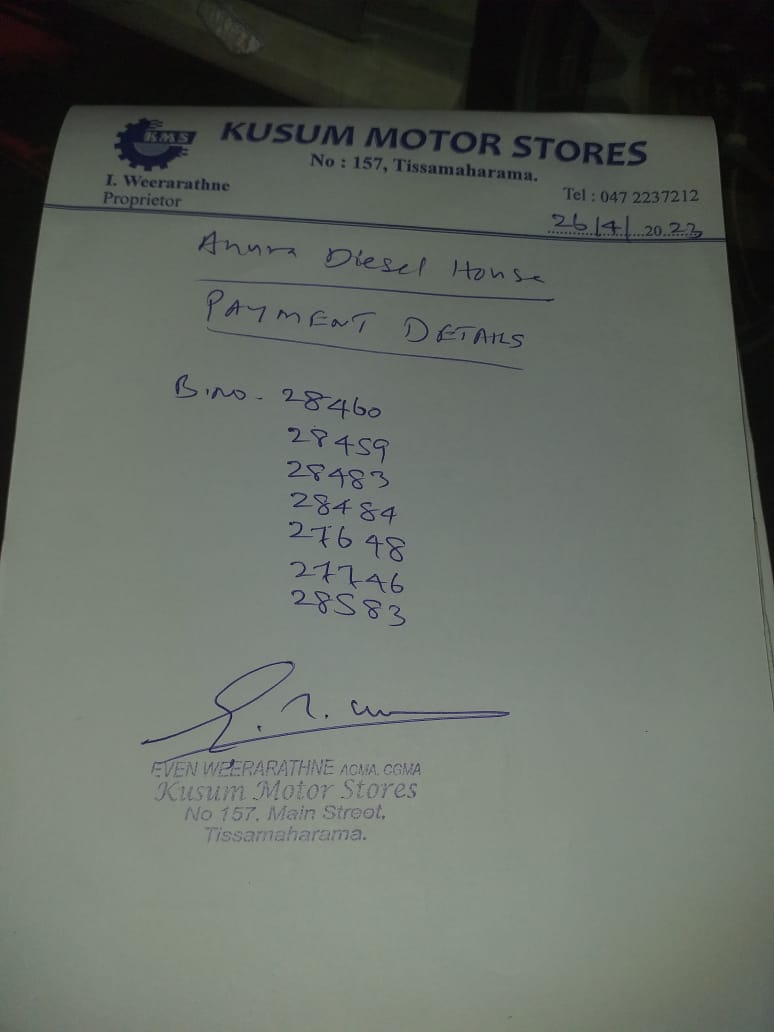 KMS
KUSUM MOTOR STORES
No : 157, Tissamaharama.
I. Weerarathne
Proprietor
Tel : 047 2237212
26/4/ 2023
Anura Diesel House
PAYMENT DETAILS
B.no. 28460
28459
28483
28484
27648
27746
28583
EVEN WEERARATHNE ACMA, CGMA
Kusum Motor Stores
No 157, Main Street,
Tissamaharama.